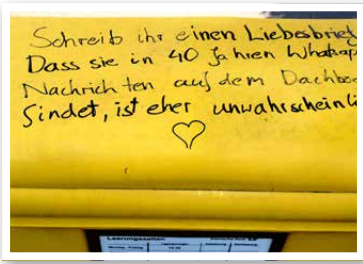 Schreib ihr einen Liebesbrief
Dass sie in 40 Jahren Whatsap
Nachrichten auf dem Dachbo
findet, ist eher unwahrscheinli
Leerungszeiten